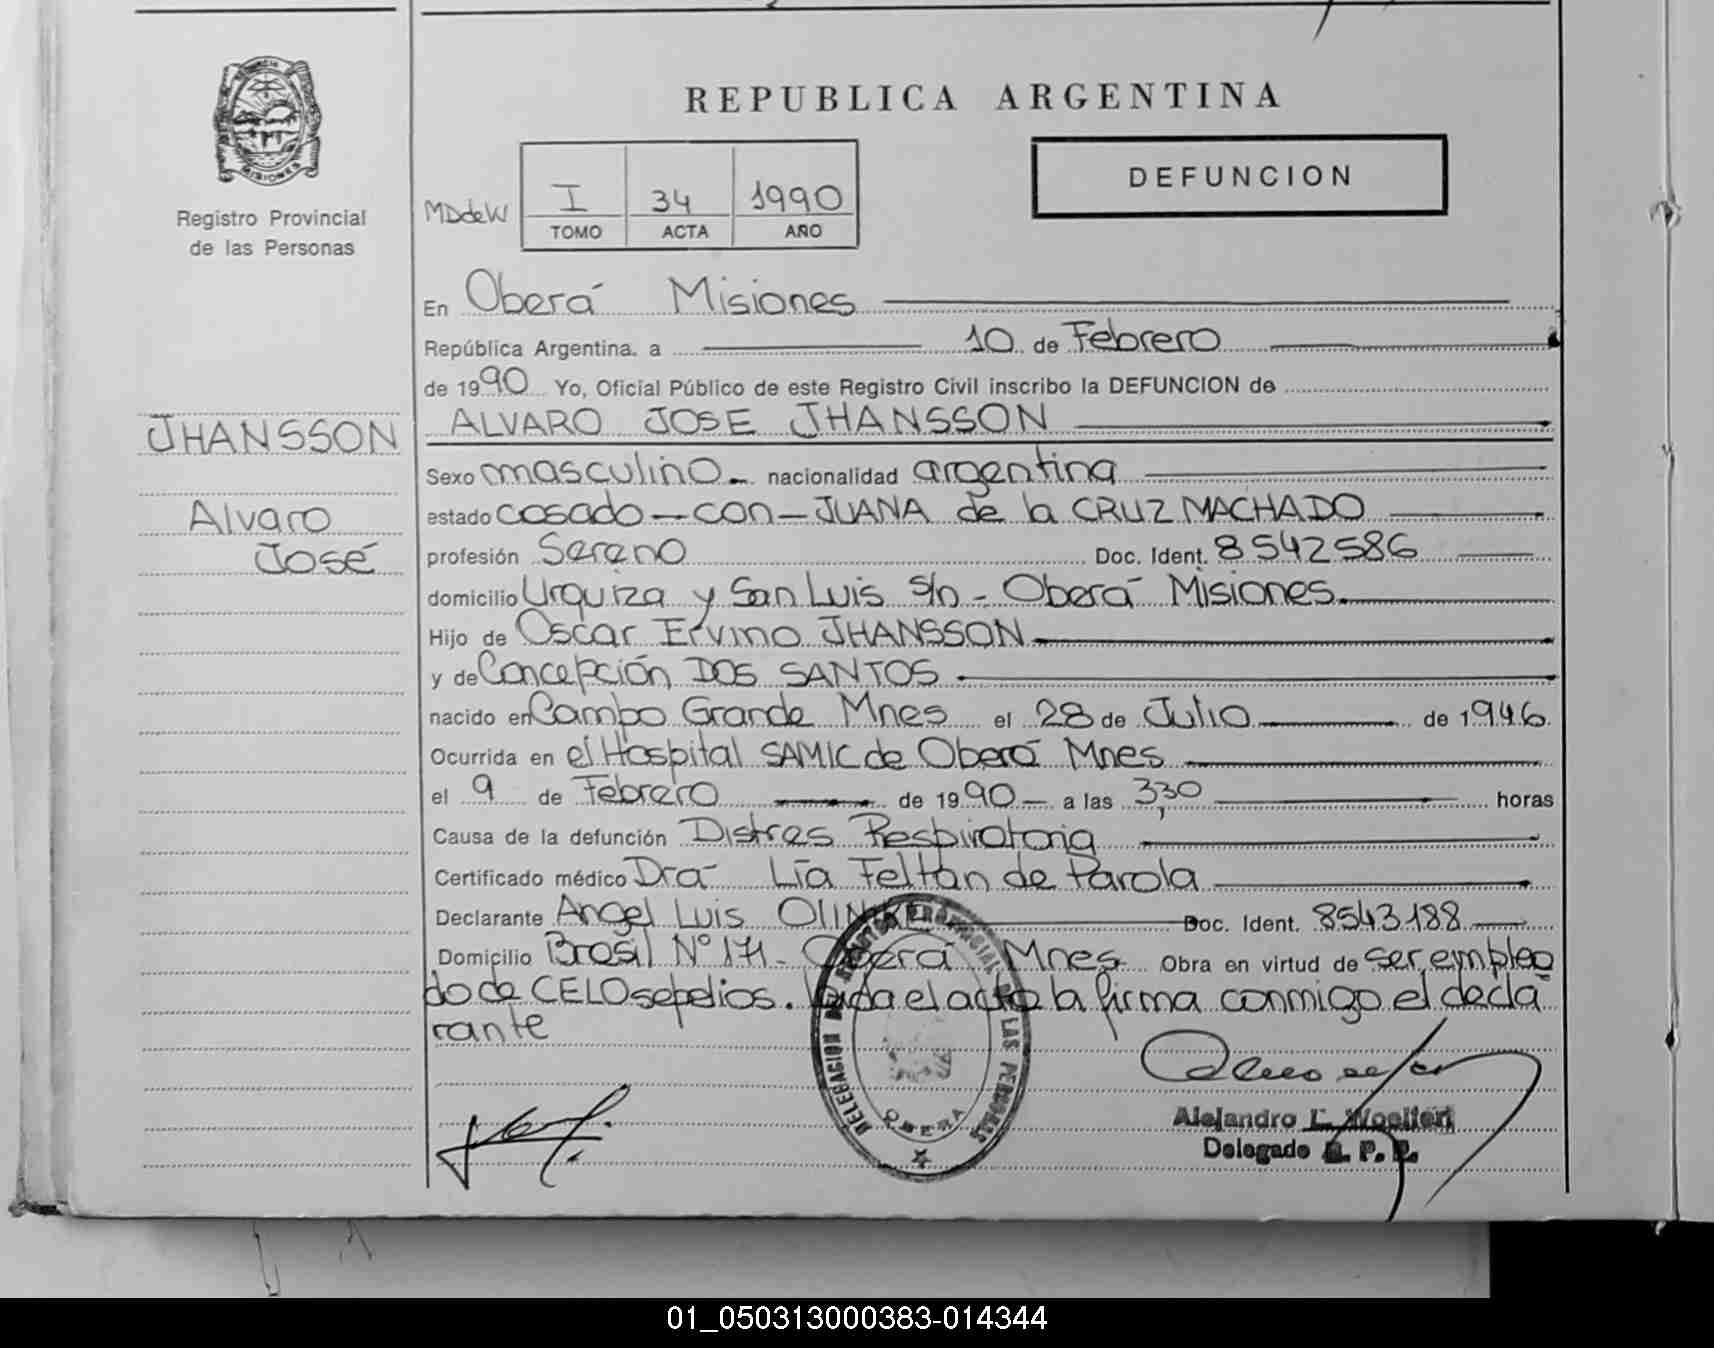 REPUBLICA ARGENTINA
MISIONES
Registro Provincial
de las Personas
MDdeW
I 34 1990
TOMO ACTA AÑO
DEFUNCION
En Oberá Misiones
República Argentina. a 10 de Febrero
de 1990 Yo, Oficial Público de este Registro Civil inscribo la DEFUNCION de
ALVARO JOSE JHANSSON
JHANSSON
Alvaro
José
Sexo masculino nacionalidad argentina
estado casado - con - JUANA de la CRUZ MACHADO
profesión Sereno Doc. Ident. 8542586
domicilio Urquiza y San Luis s/n - Oberá Misiones.
Hijo de Oscar Ervino JHANSSON
y de Concepción DOS SANTOS
nacido en Campo Grande Mnes el 28 de Julio de 1946.
Ocurrida en el Hospital SAMIC de Oberá Mnes
el 9 de Febrero de 1990 a las 3,30 horas
Causa de la defunción Distres Respiratoria
Certificado médico Dra Lía Feltan de Parola
Declarante Angel Luis Doc. Ident. 8543188
Domicilio Brasil N° 171 - Oberá Mnes Obra en virtud de ser emplea
do de CELO sepelios. Leida el acta la firma conmigo el decla
rante
DELEGACION DEL REGISTRO PROVINCIAL DE LAS PERSONAS
OBERA
Alejandro
Delegado R. P. P.
01_050313000383-014344